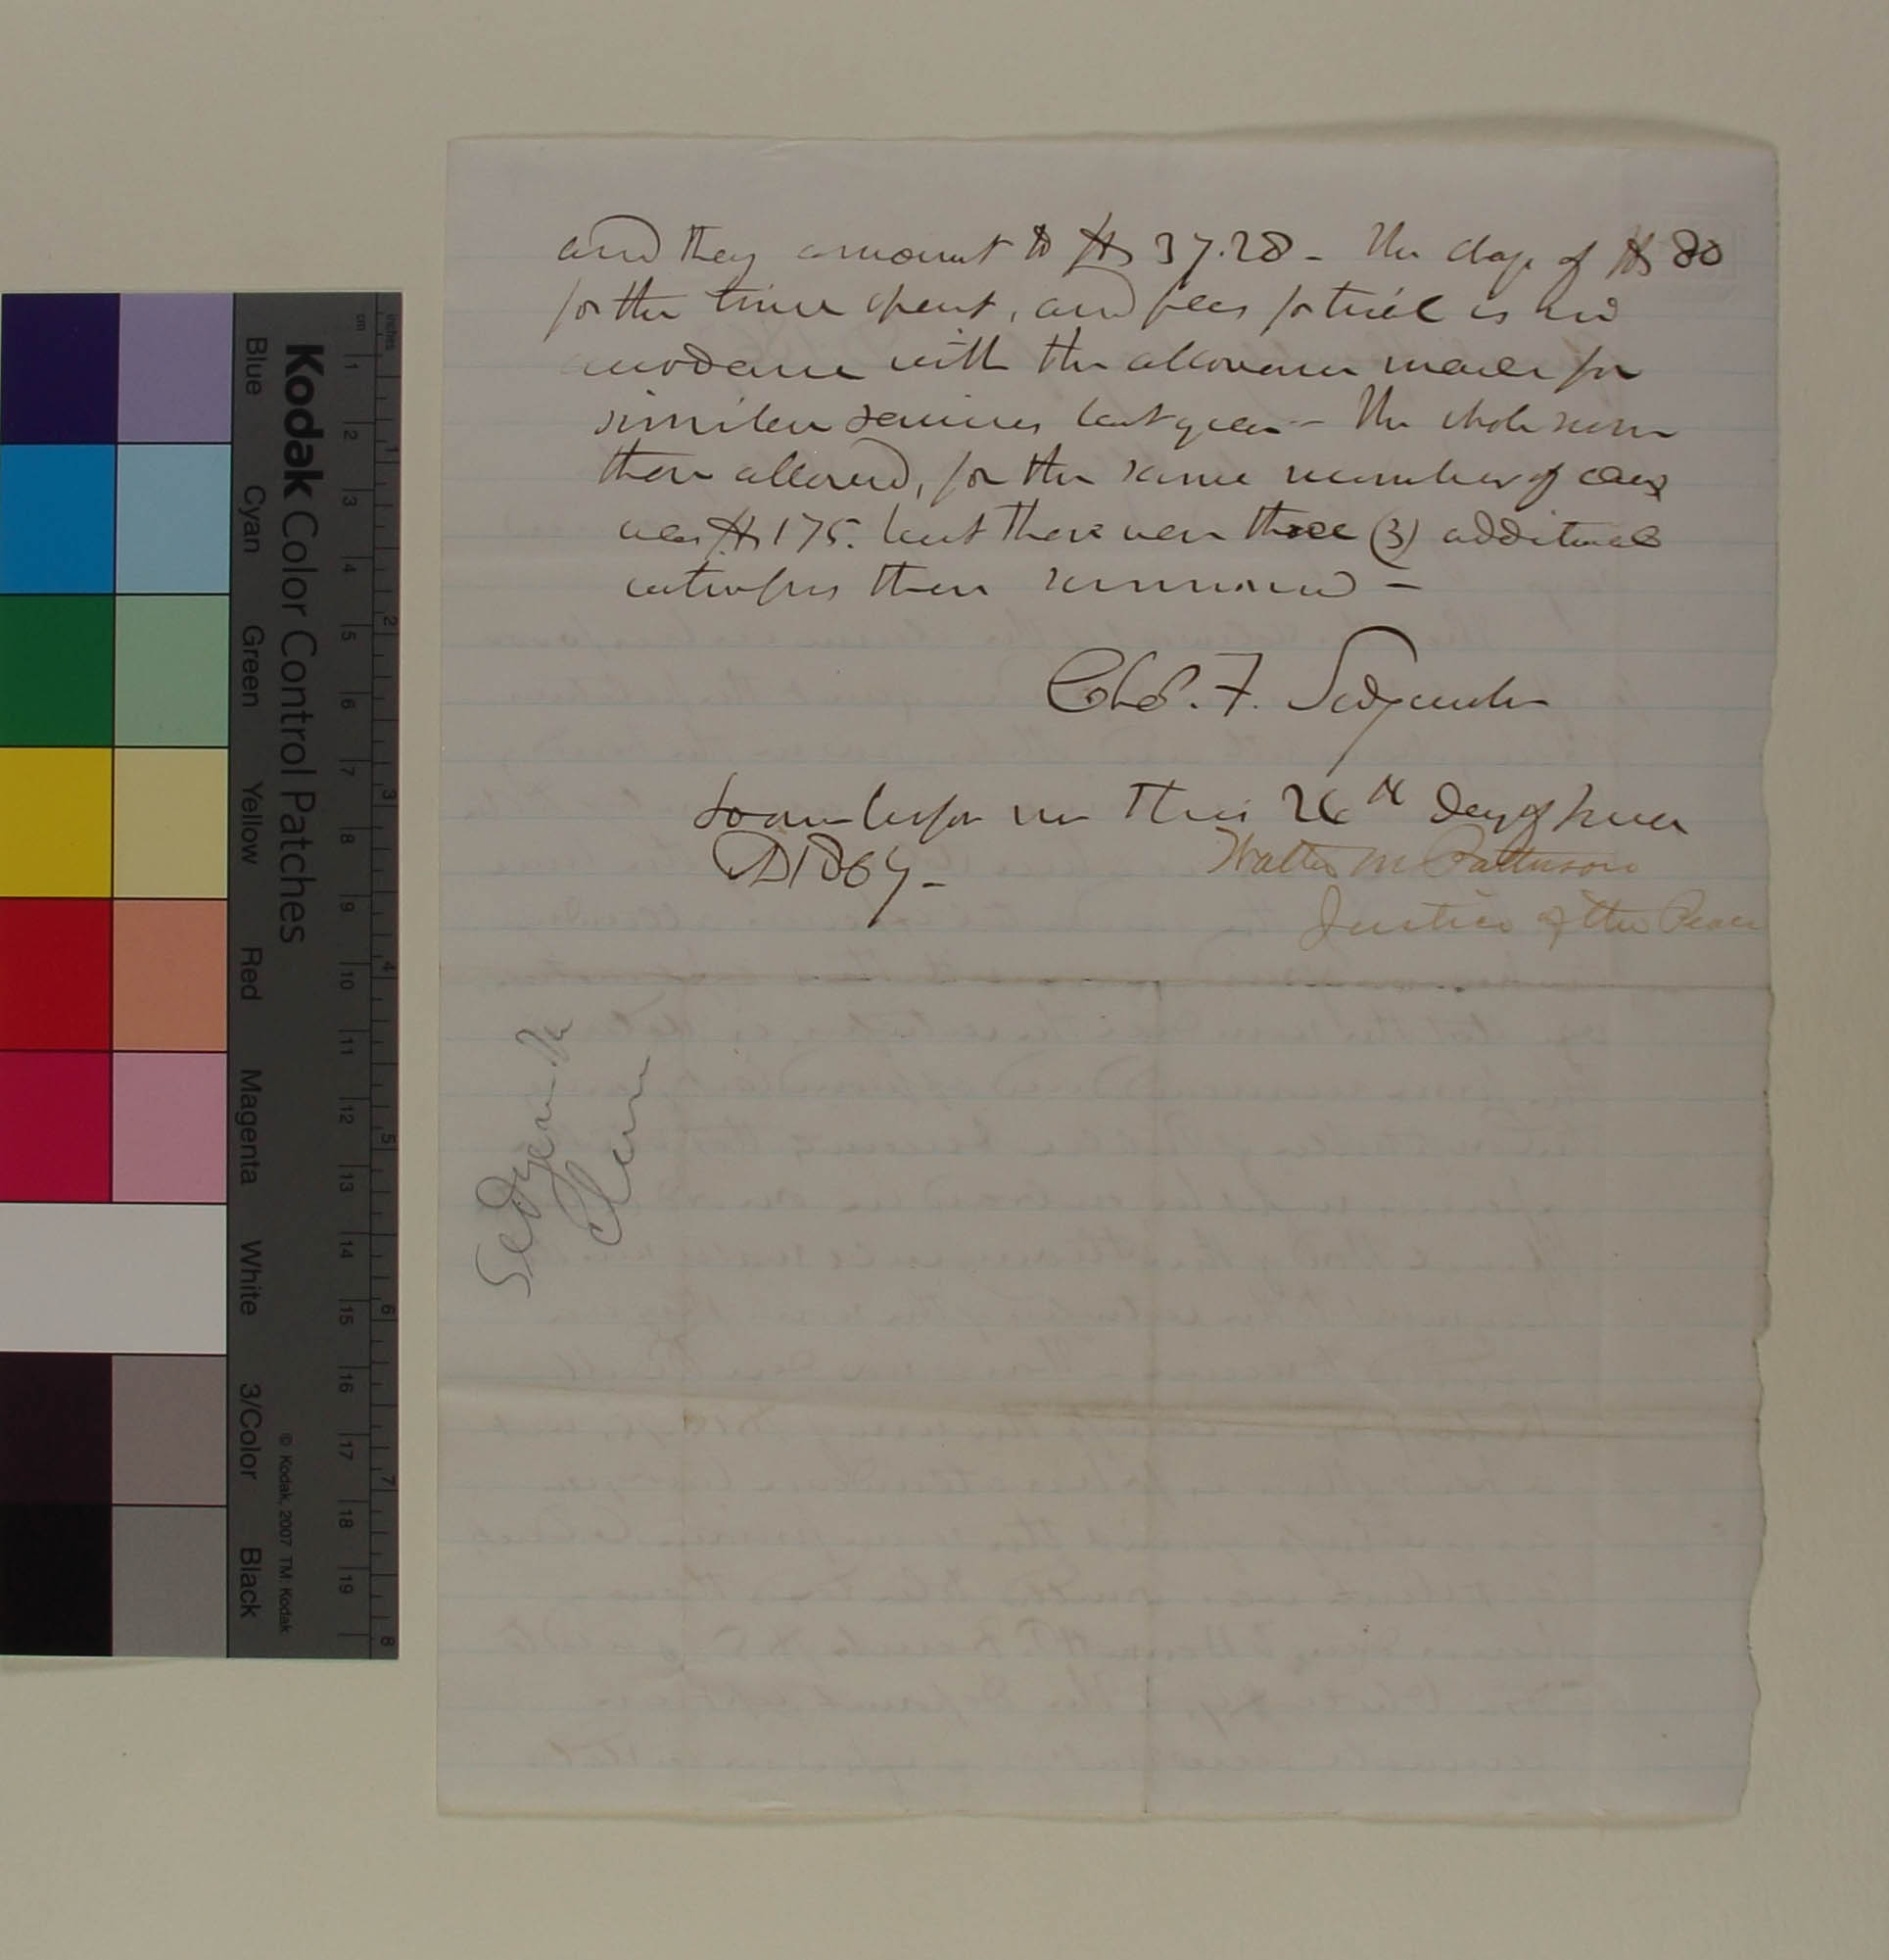 and they amount to $37.28 - The charge of $80
for the time spent, and fees for trial is in
accordance with the allowance made for
similar services last year - The whole sum
then allowed, for the same number of days
was $175. but there were three (3) additional
witnesses then summoned -
Chs. F. Sedgwick
Sworn before me this 26th day of June
AD 1867-
Walter M Patterson
Justice of the Peace
Sedgwick
Claim
Kodak Color Control Patches
Blue Cyan Green Yellow Red Magenta White 3/Color Black
© Kodak, 2007 TM: Kodak
cm 1 2 3 4 5 6 7 8 9 10 11 12 13 14 15 16 17 18 19
inches 1 2 3 4 5 6 7 8